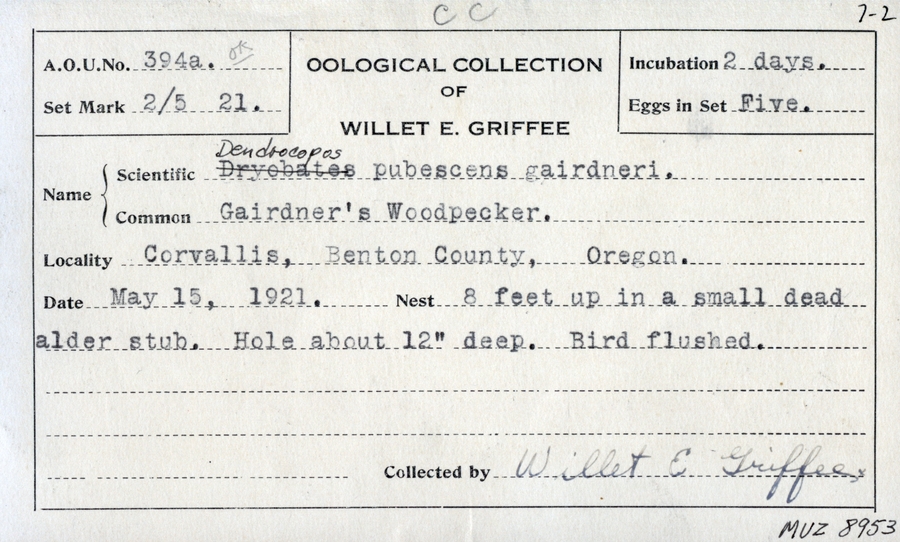 C C
7-2
A.O.U.No. 394a. ok
OOLOGICAL COLLECTION
OF
WILLET E. GRIFFEE
Incubation 2 days.
Set Mark 2/5 21.
Eggs in Set Five.
Dendrocopos
Name Scientific Dryobates pubescens gairdneri.
Common Gairdner's Woodpecker.
Locality Corvallis, Benton County, Oregon.
Date May 15, 1921. Nest 8 feet up in a small dead
alder stub. Hole about 12" deep. Bird flushed.
Collected by Willet E Griffee
MUZ 8953